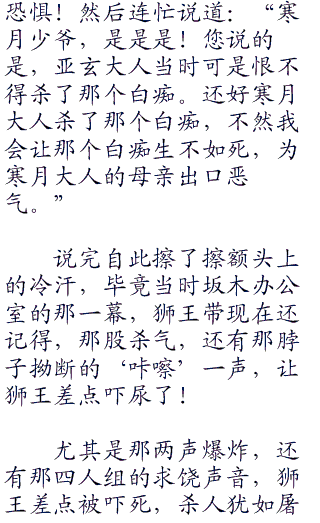 恐惧！然后连忙说道：“寒
月少爷，是是是！您说的
是，亚玄大人当时可是恨不
得杀了那个白痴。还好寒月
大人杀了那个白痴，不然我
会让那个白痴生不如死，为
寒月大人的母亲出口恶
气。”
说完自此擦了擦额头上
的冷汗，毕竟当时坂木办公
室的那一幕，狮王带现在还
记得，那股杀气，还有那脖
子拗断的‘咔嚓’一声，让
狮王差点吓尿了！
尤其是那两声爆炸，还
有那四人组的求饶声音，狮
王差点被吓死，杀人犹如屠